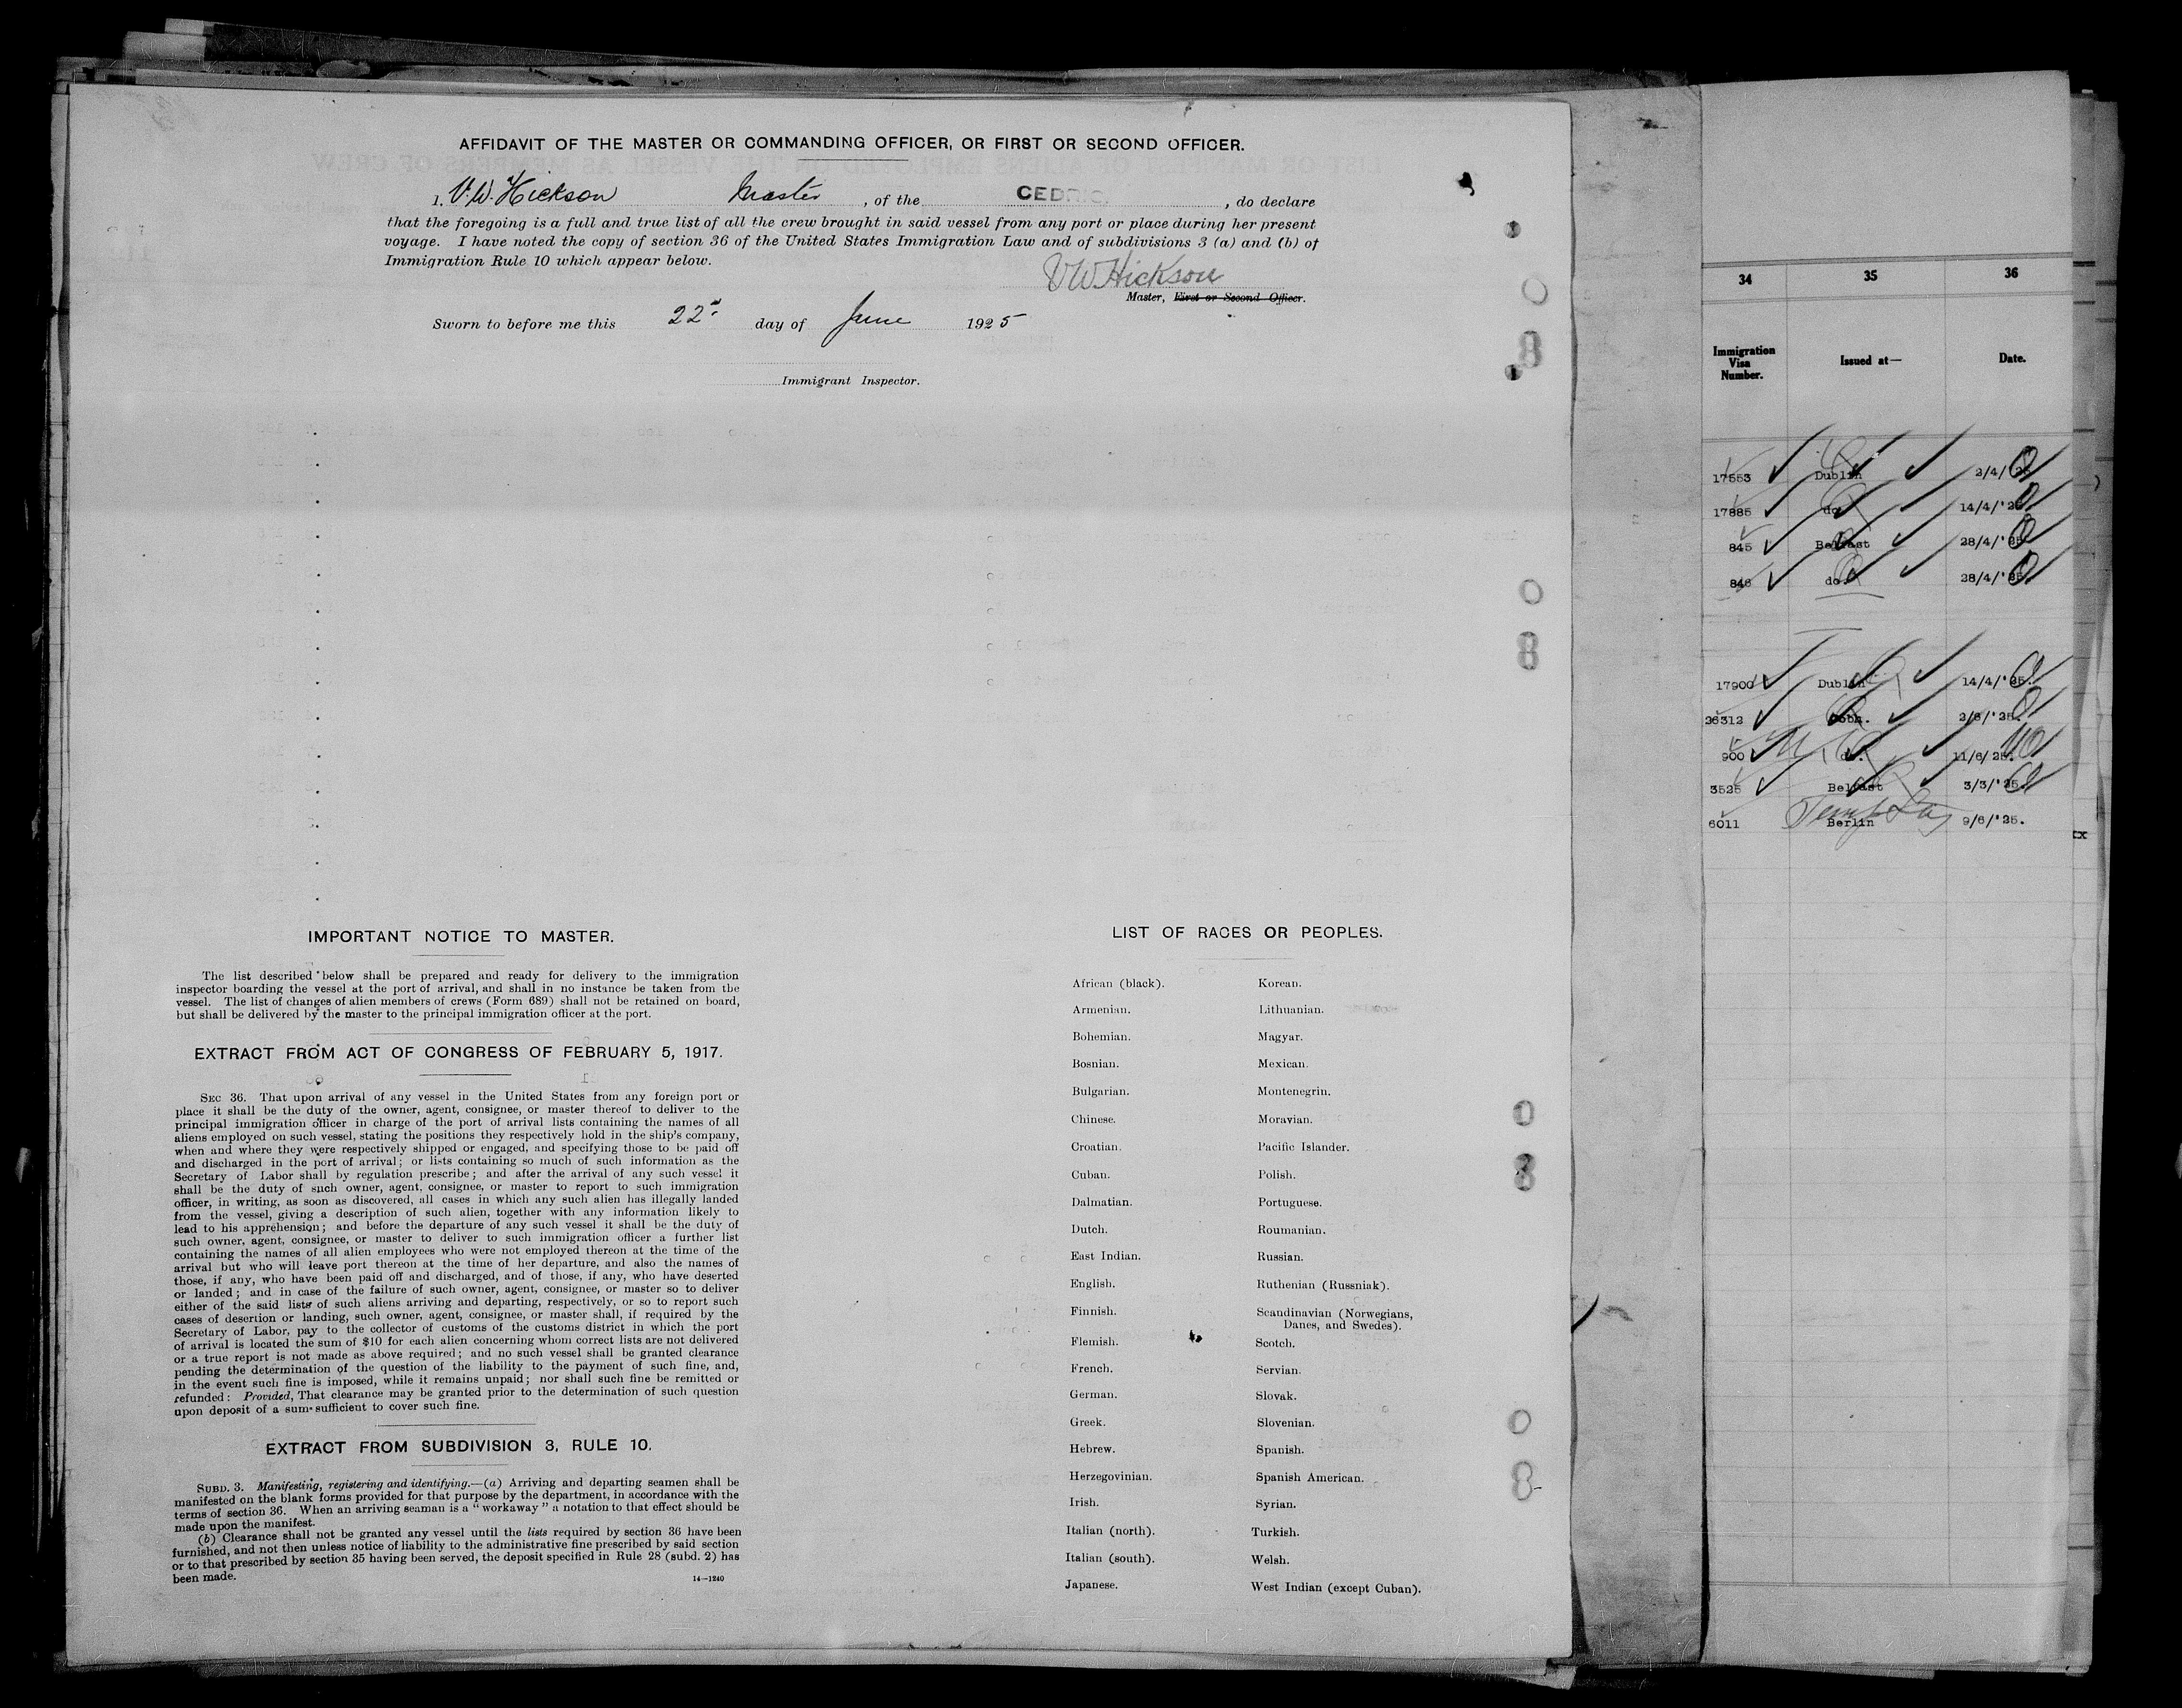 AFFIDAVIT OF THE MASTER OR COMMANDING OFFICER, OR FIRST OR SECOND OFFICER.
I, V. W. Hickson Master, of the CEDRIC, do declare
that the foregoing is a full and true list of all the crew brought in said vessel from any port or place during her present
voyage. I have noted the copy of section 36 of the United States Immigration Law and of subdivisions 3 (a) and (b) of
Immigration Rule 10 which appear below.
V W Hickson
Master, First or Second Officer.
Sworn to before me this 22 day of June 1925
Immigrant Inspector.
IMPORTANT NOTICE TO MASTER.
The list described below shall be prepared and ready for delivery to the immigration
inspector boarding the vessel at the port of arrival, and shall in no instance be taken from the
vessel. The list of changes of alien members of crews (Form 689) shall not be retained on board,
but shall be delivered by the master to the principal immigration officer at the port.
EXTRACT FROM ACT OF CONGRESS OF FEBRUARY 5, 1917.
SEC 36. That upon arrival of any vessel in the United States from any foreign port or
place it shall be the duty of the owner, agent, consignee, or master thereof to deliver to the
principal immigration officer in charge of the port of arrival lists containing the names of all
aliens employed on such vessel, stating the positions they respectively hold in the ship's company,
when and where they were respectively shipped or engaged, and specifying those to be paid off
and discharged in the port of arrival; or lists containing so much of such information as the
Secretary of Labor shall by regulation prescribe; and after the arrival of any such vessel it
shall be the duty of such owner, agent, consignee, or master to report to such immigration
officer, in writing, as soon as discovered, all cases in which any such alien has illegally landed
from the vessel, giving a description of such alien, together with any information likely to
lead to his apprehension; and before the departure of any such vessel it shall be the duty of
such owner, agent, consignee, or master to deliver to such immigration officer a further list
containing the names of all alien employees who were not employed thereon at the time of the
arrival but who will leave port thereon at the time of her departure, and also the names of
those, if any, who have been paid off and discharged, and of those, if any, who have deserted
or landed; and in case of the failure of such owner, agent, consignee, or master so to deliver
either of the said lists of such aliens arriving and departing, respectively, or so to report such
cases of desertion or landing, such owner, agent, consignee, or master shall, if required by the
Secretary of Labor, pay to the collector of customs of the customs district in which the port
of arrival is located the sum of $10 for each alien concerning whom correct lists are not delivered
or a true report is not made as above required; and no such vessel shall be granted clearance
pending the determination of the question of the liability to the payment of such fine, and,
in the event such fine is imposed, while it remains unpaid; nor shall such fine be remitted or
refunded: Provided, That clearance may be granted prior to the determination of such question
upon deposit of a sum sufficient to cover such fine.
EXTRACT FROM SUBDIVISION 3, RULE 10.
SUBD. 3. Manifesting, registering and identifying.—(a) Arriving and departing seamen shall be
manifested on the blank forms provided for that purpose by the department, in accordance with the
terms of section 36. When an arriving seaman is a "workaway" a notation to that effect should be
made upon the manifest.
(b) Clearance shall not be granted any vessel until the lists required by section 36 have been
furnished, and not then unless notice of liability to the administrative fine prescribed by said section
or to that prescribed by section 35 having been served, the deposit specified in Rule 28 (subd. 2) has
been made.
14—1240
LIST OF RACES OR PEOPLES.
African (black). Korean.
Armenian. Lithuanian.
Bohemian. Magyar.
Bosnian. Mexican.
Bulgarian. Montenegrin.
Chinese. Moravian.
Croatian. Pacific Islander.
Cuban. Polish.
Dalmatian. Portuguese.
Dutch. Roumanian.
East Indian. Russian.
English. Ruthenian (Russniak).
Finnish. Scandinavian (Norwegians,
Danes, and Swedes).
Flemish. Scotch.
French. Servian.
German. Slovak.
Greek. Slovenian.
Hebrew. Spanish.
Herzegovinian. Spanish American.
Irish. Syrian.
Italian (north). Turkish.
Italian (south). Welsh.
Japanese. West Indian (except Cuban).
34 35 36
Immigration
Visa
Number. Issued at— Date.
17553 Dublin 2/4/
17885 do. 14/4/'25
845 Belfast 28/4/'25
846 do. 28/4/'25
17900 Dublin 14/4/'25.
26312 Cobh. 2/6/'25.
900 do. 11/6/25.
3525 Belfast 3/3/'25.
6011 Berlin 9/6/'25.